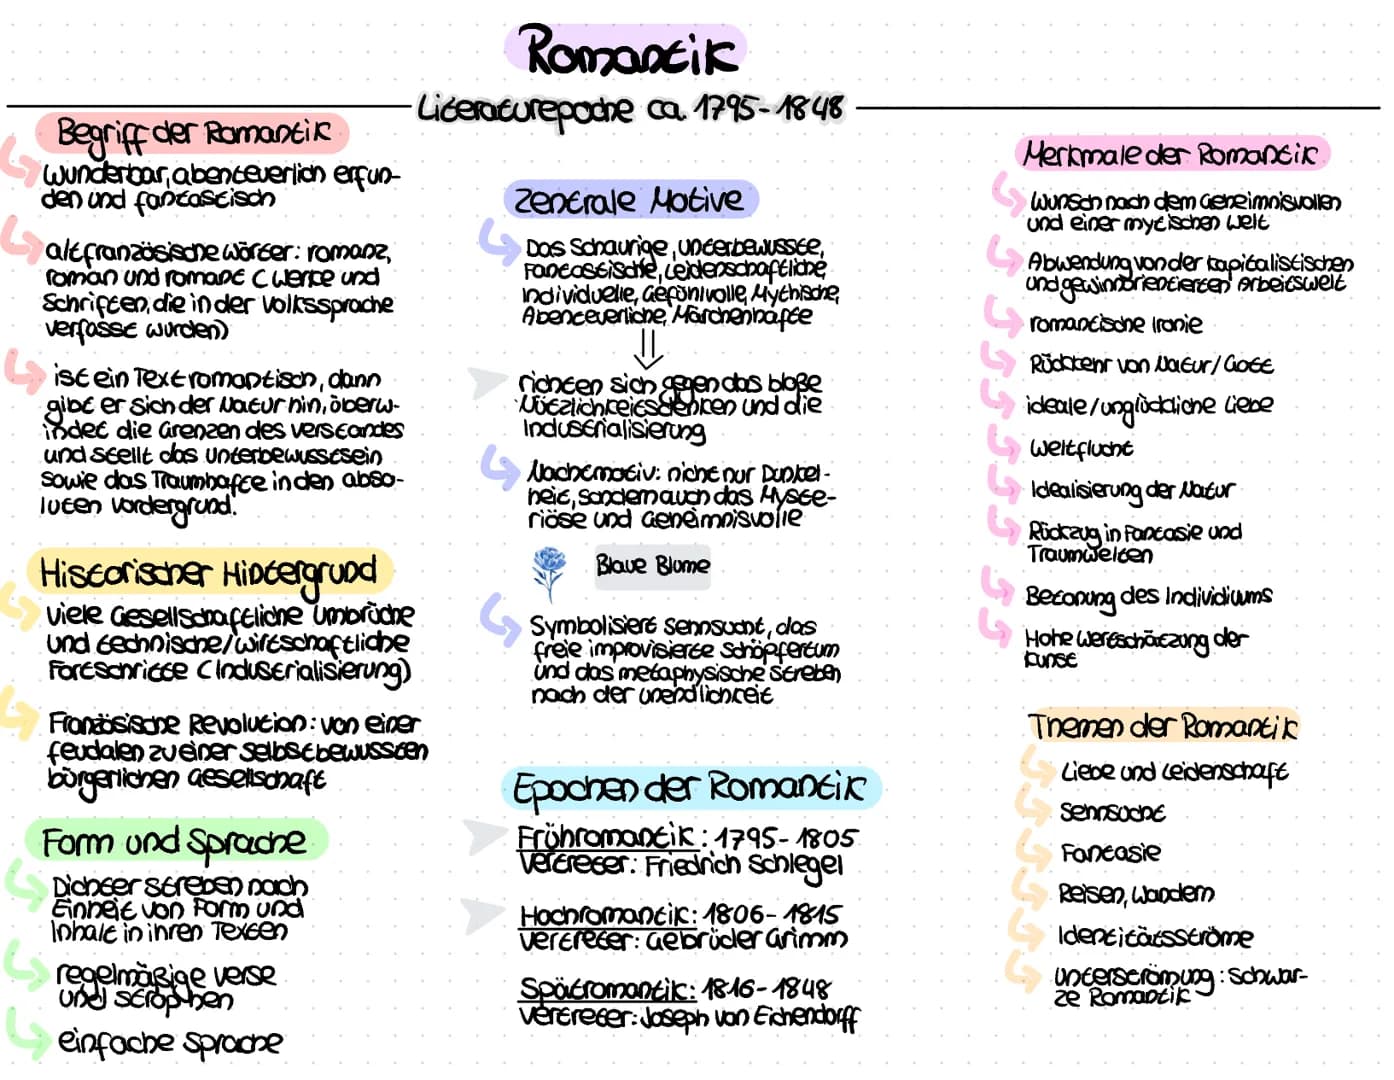 Romantik
Literaturepoche ca. 1795-1848
Begriff der Romantik
wunderbar, abenteuerlich erfun-
den und fantastisch
altfranzösische Wörter: romanz,
roman und romant (Werke und
Schriften, die in der Volkssprache
verfasst wurden)
ist ein Text romantisch, dann
gibt er sich der Natur hin, überw-
indet die Grenzen des Verstandes
und stellt das Unterbewusstsein
sowie das Traumhafte in den abso-
luten Vordergrund.
Historischer Hintergrund
viele Gesellschaftliche Umbrüche
und technische/wirtschaftliche
Fortschritte (Industrialisierung)
Französische Revolution: von einer
feudalen zu einer selbstbewussten
bürgerlichen Gesellschaft
Form und Sprache
Dichter streben nach
Einheit von Form und
Inhalt in ihren Texten
regelmäßige Verse
und Strophen
einfache Sprache
Zentrale Motive
Das Schaurige, Unterbewusste,
Fantastische, Leidenschaftliche,
Individuelle, Gefühlvolle, Mythische,
Abenteuerliche, Märchenhafte
richten sich gegen das bloße
Nützlichkeitsdenken und die
Industrialisierung
Nachtmotiv: nicht nur Dunkel-
heit, sondern auch das Myste-
riöse und Geheimnisvolle
Blaue Blume
Symbolisiert Sehnsucht, das
freie improvisierte Schöpfertum
und das metaphysische Streben
nach der Unendlichkeit
Epochen der Romantik
Frühromantik: 1795-1805
Vertreter: Friedrich Schlegel
Hochromantik: 1806-1815
Vertreter: Gebrüder Grimm
Spätromantik: 1816-1848
Vertreter: Joseph von Eichendorff
Merkmale der Romantik
Wunsch nach dem Geheimnisvollen
und einer mytischen Welt
Abwendung von der kapitalistischen
und gewinnorientierten Arbeitswelt
romantische Ironie
Rückkehr von Natur/Gott
ideale/unglückliche Liebe
Weltflucht
Idealisierung der Natur
Rückzug in Fantasie und
Traumwelten
Betonung des Individiums
Hohe Wertschätzung der
Kunst
Themen der Romantik
Liebe und Leidenschaft
Sehnsucht
Fantasie
Reisen, Wandern
Identitätsströme
Unterströmung: Schwar-
ze Romantik